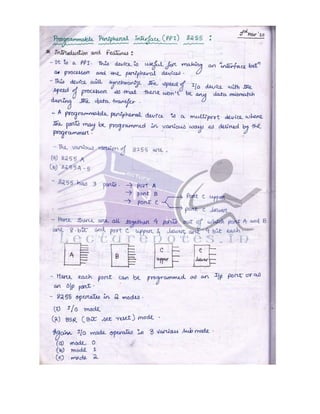 2nd Mar '20
Programmable Peripheral Interface (PPI) 8255 :
* Introduction and Features :
- It is a PPI. This device is useful for making an "interface bet"
a processor and one peripheral devices.
- This device will synchronize the speed of I/O device with the
speed of processor so that there won't be any data mismatch
during the data transfer.
- A programmable peripheral device is a multiport device where
the ports may be programmed in various ways as defined by the
programmer.
- The various version of 8255 are.
(a) 8255 A
(b) 8255A-5
- 8255 has 3 ports → port A
→ port B
→ port C
Port C upper
port C lower
- Here there are all together 4 ports out of which port A and B
are 8-bit and port C upper & lower are 4 bit each
Lecturenotes.in
A
B
C
upper
C
lower
- Here each port can be programmed as an I/p port or as
an O/p port.
- 8255 operates in 2 modes.
(1) I/O mode
(2) BSR (Bit set reset) mode.
Again I/O mode operates in 3 various sub mode.
(a) mode 0
(b) mode 1
(c) mode 2